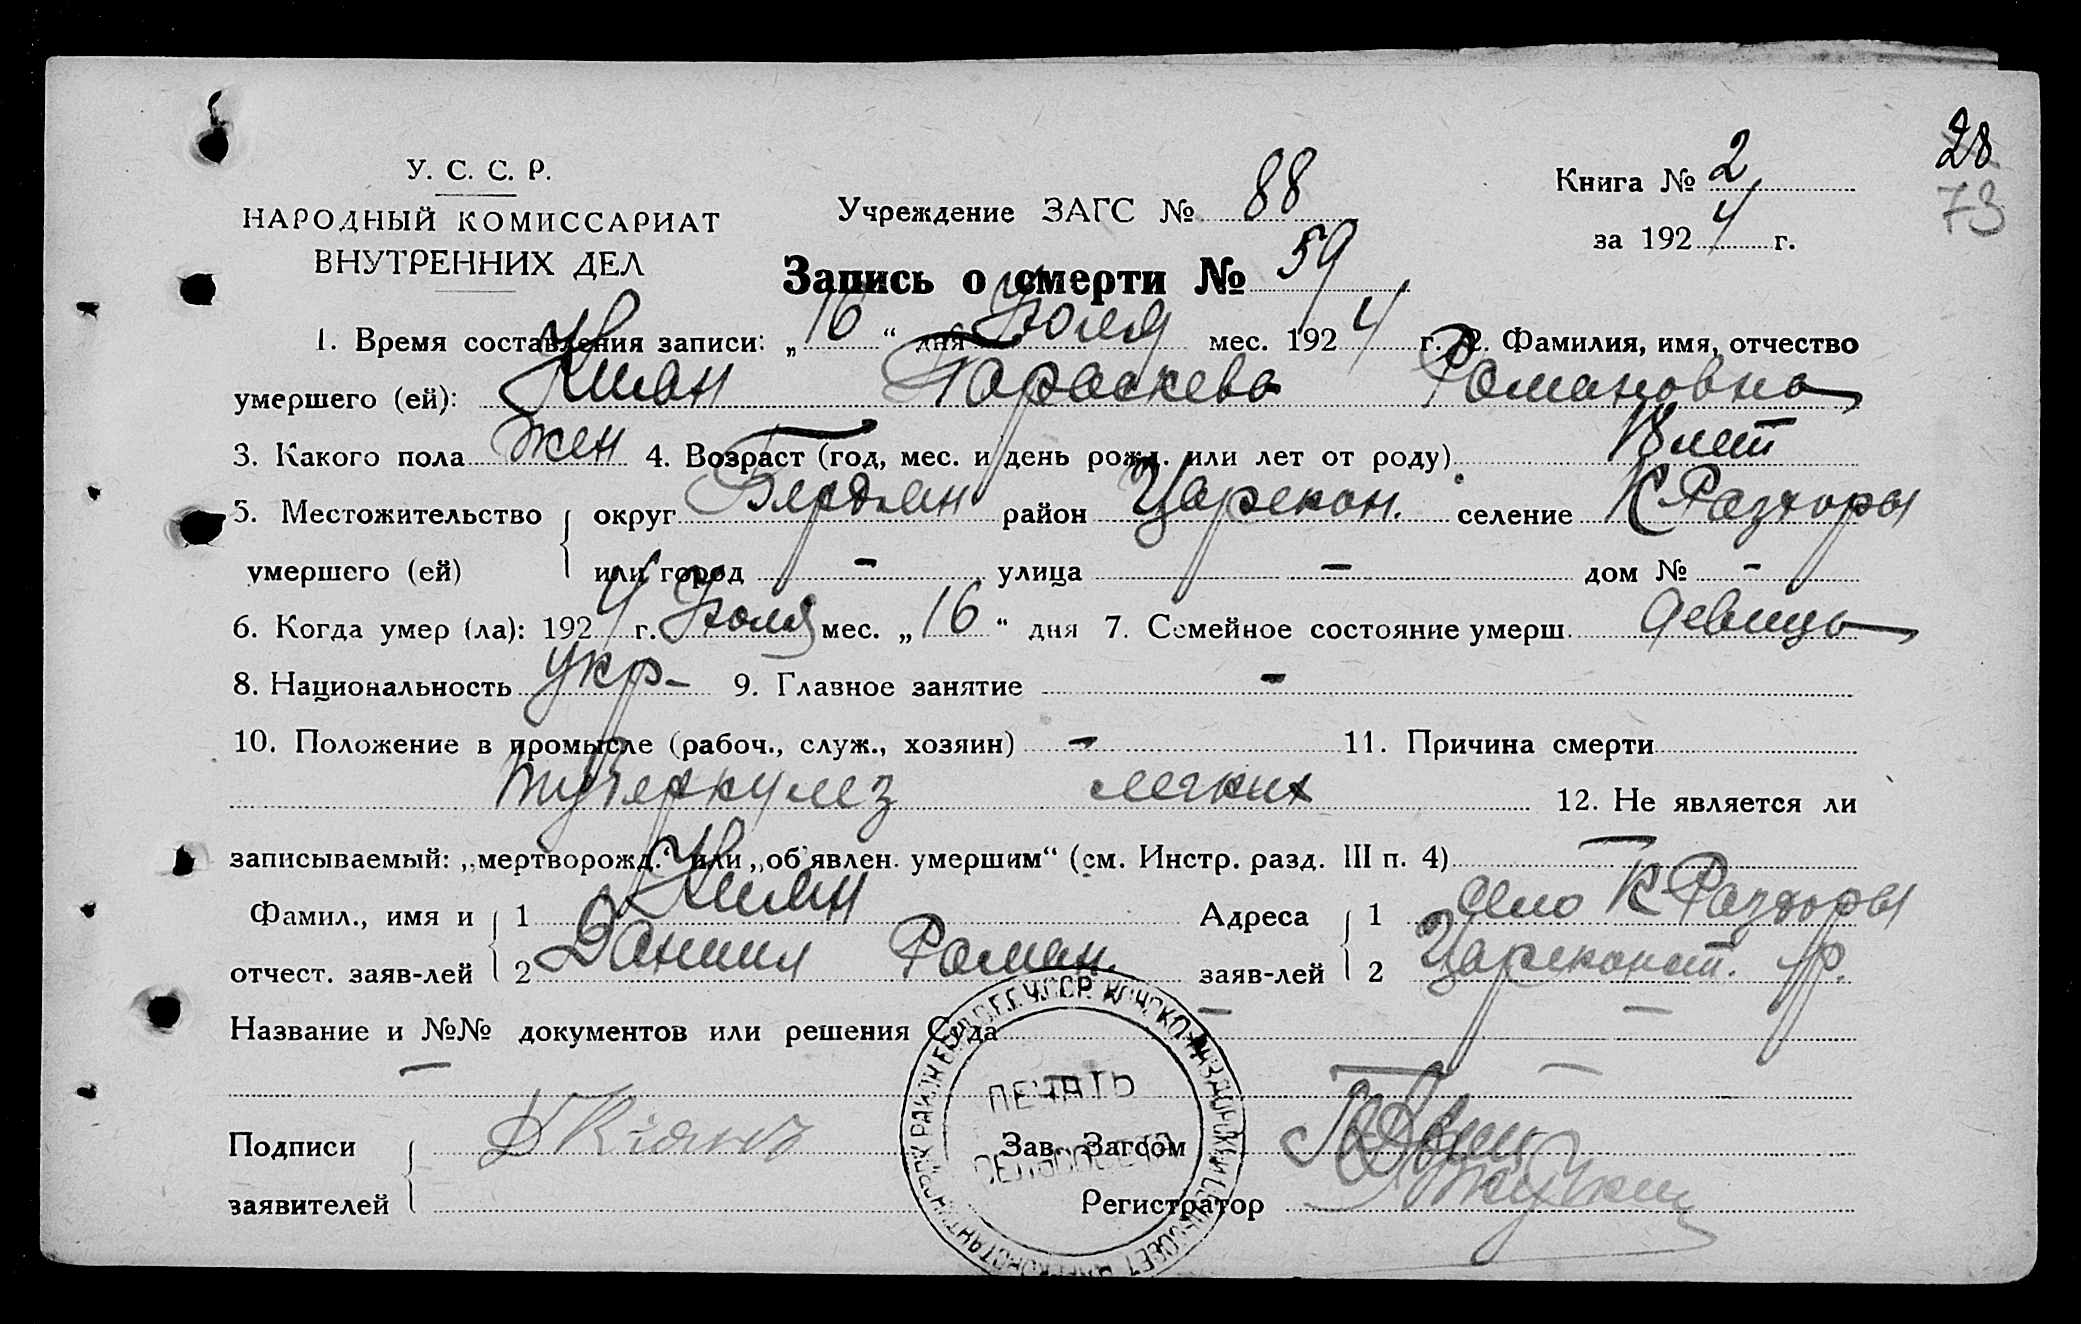 28
73
У. С. С. Р.
НАРОДНЫЙ КОМИССАРИАТ
ВНУТРЕННИХ ДЕЛ
Учреждение ЗАГС № 88
Книга № 2
за 1924 г.
Запись о смерти № 59
1. Время составления записи: „16“ дня Июля мес. 1924 г. 2. Фамилия, имя, отчество
умершего (ей): Киян Параскева Романовна
3. Какого пола жен 4. Возраст (год, мес. и день рожд. или лет от роду) 18 лет
5. Местожительство округ Бердян район Царекон. селение К Раздоры
умершего (ей) или город - улица - дом № -
6. Когда умер (ла): 1924 г. Июля мес. „16“ дня 7. Семейное состояние умерш. девица
8. Национальность укр- 9. Главное занятие -
10. Положение в промысле (рабоч., служ., хозяин) - 11. Причина смерти
туберкулез легких 12. Не является ли
записываемый: „мертворожд.“ или „об'явлен. умершим“ (см. Инстр. разд. III п. 4) —
Фамил., имя и 1 Киян Адреса 1 село К Раздоры
отчест. заяв-лей 2 Даниил Роман. заяв-лей 2 Цареконст. р.
Название и №№ документов или решения Суда — —
— — —
Подписи Д Кіянъ Зав. Загсом
заявителей Регистратор
ПЕЧАТЬ
СЕЛЬСОВЕТА